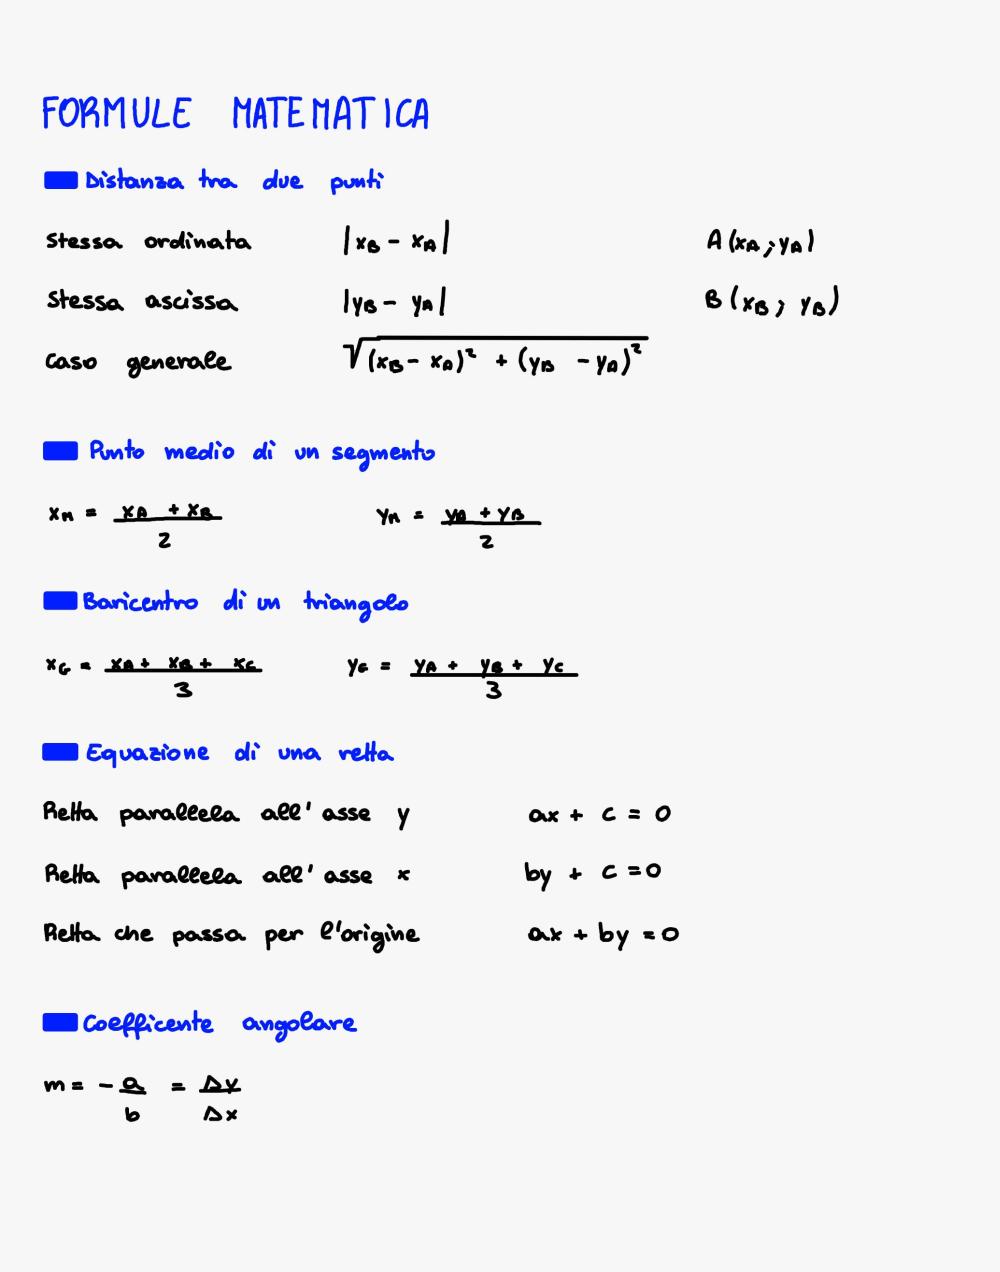 FORMULE MATEMATICA
Distanza tra due punti
Stessa ordinata |xB - xA| A(xA; yA)
Stessa ascissa |yB - yA| B(xB; yB)
Caso generale √(xB - xA)² + (yB - yA)²
Punto medio di un segmento
xM = xA + xB / 2 yM = yA + yB / 2
Baricentro di un triangolo
xG = xA + xB + xC / 3 yG = yA + yB + yC / 3
Equazione di una retta
Retta parallela all'asse y ax + c = 0
Retta parallela all'asse x by + c = 0
Retta che passa per l'origine ax + by = 0
Coefficente angolare
m = - a / b = Δy / Δx